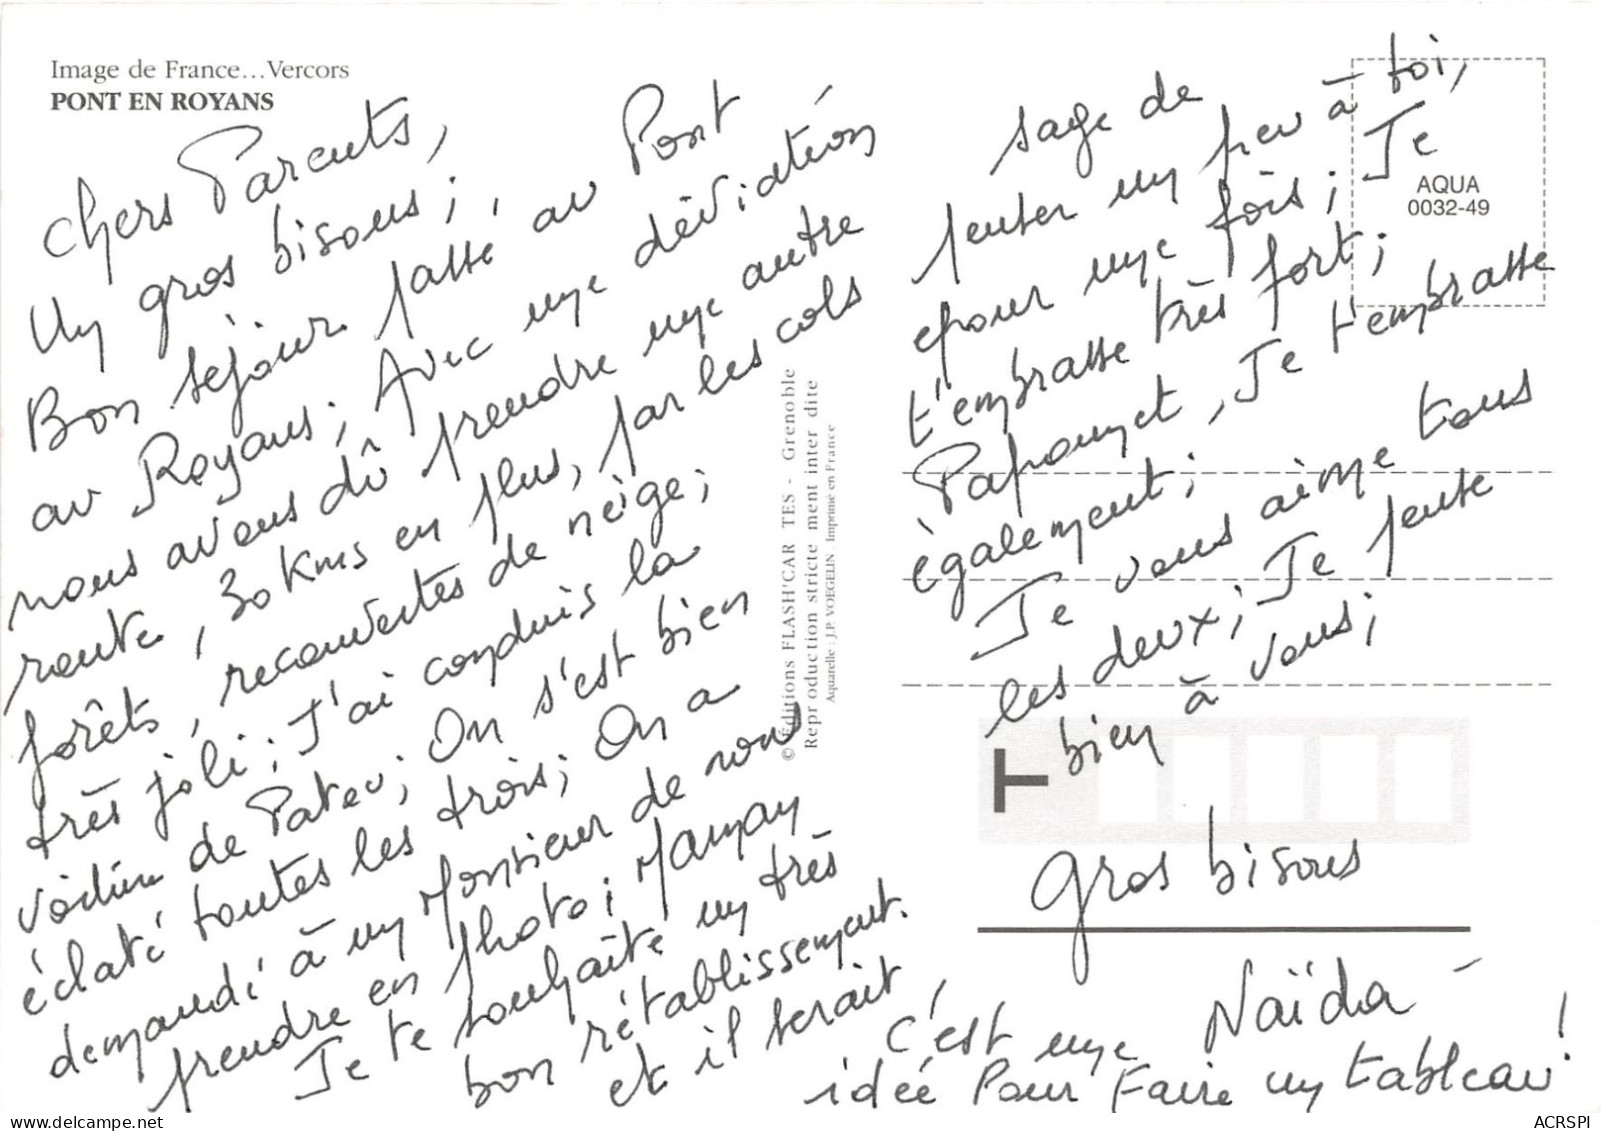 Image de France...Vercors
PONT EN ROYANS
Chers Parents,
Un gros bisous ;
Bon séjour passé, au Pont
au Royans ; Avec une déviation
nous avons dû prendre une autre
route, 30 kms en plus, par les cols
forêts, recouvertes de neige ;
très joli ; J'ai conduis la
voiture de Patou ; On s'est bien
éclaté toutes les trois ; On a
demandé à un Monsieur de nous
prendre en photo ; Maman
Je te souhaite un très
bon rétablissement.
et il serait,
© Éditions FLASH'CAR TES - Grenoble
Repr oduction stricte ment inter dite
Aquarelle : J.P. VOEGELIN . Imprimé en France
sage de
penser un peu à toi,
pour une fois ; Je
t'embrasse très fort ;
Papounet, Je t'embrasse
également ;
Je vous aime tous
les deux ; Je pense
bien à vous ;
AQUA
0032-49
T
Gros bisous
Naïda
C'est une
idée Pour Faire un tableau !
ACRSPI